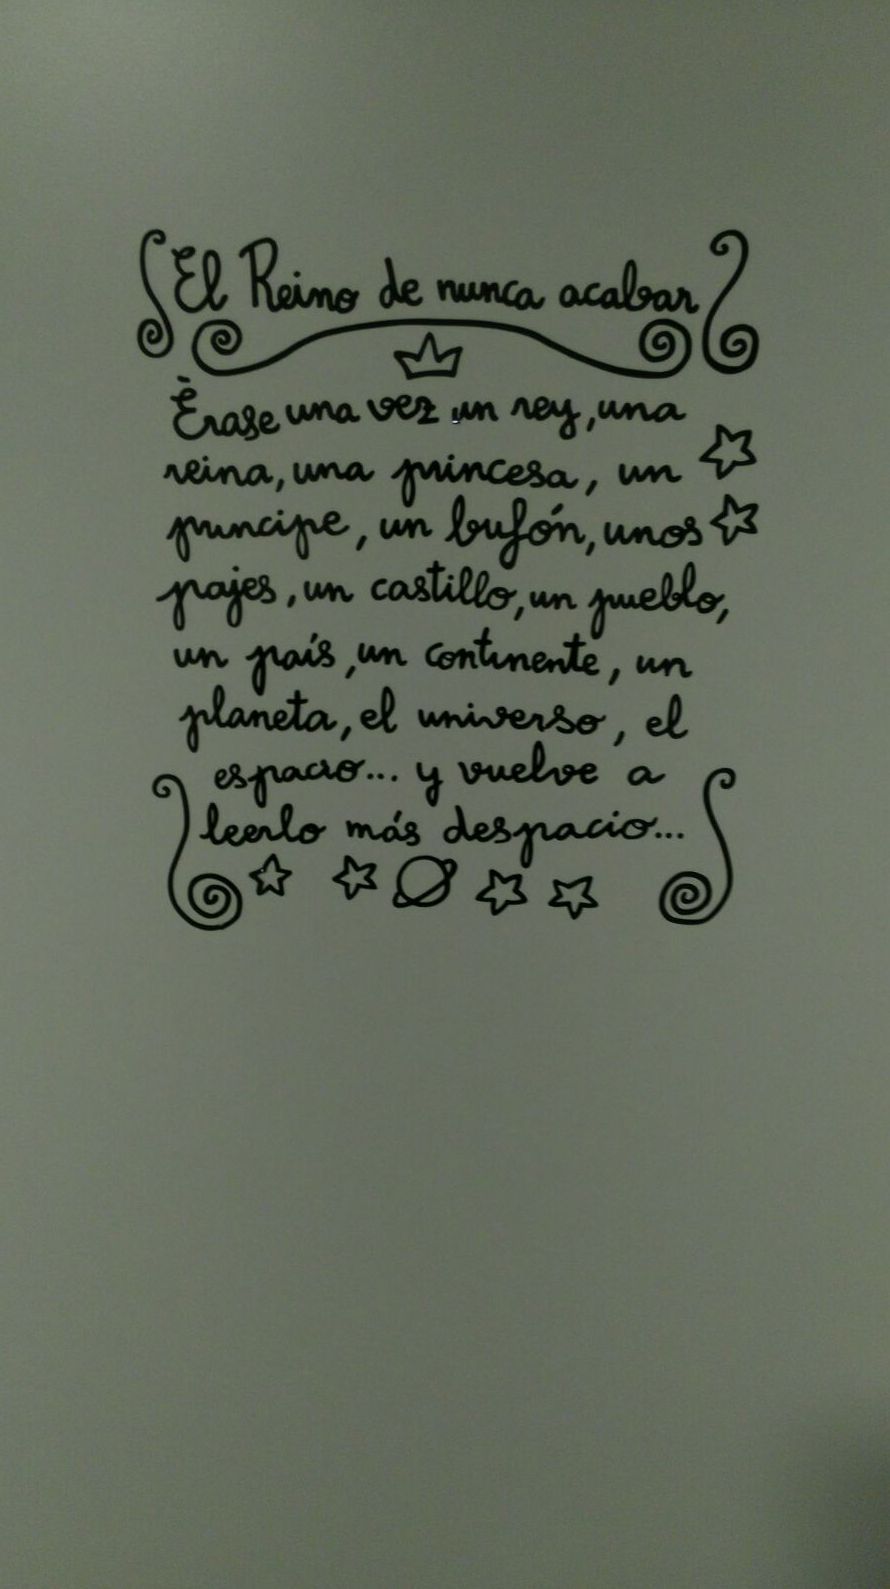 El Reino de nunca acabar
Érase una vez un rey, una
reina, una princesa, un
príncipe, un bufón, unos
pajes, un castillo, un pueblo,
un país, un continente, un
planeta, el universo, el
espacio... y vuelve a
leerlo más despacio...